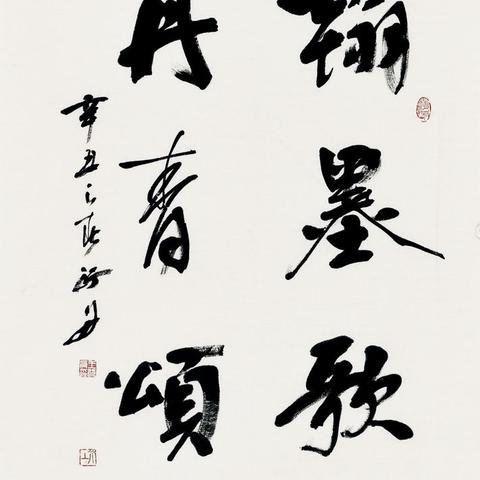 翰墨歌
丹青頌
辛丑之春